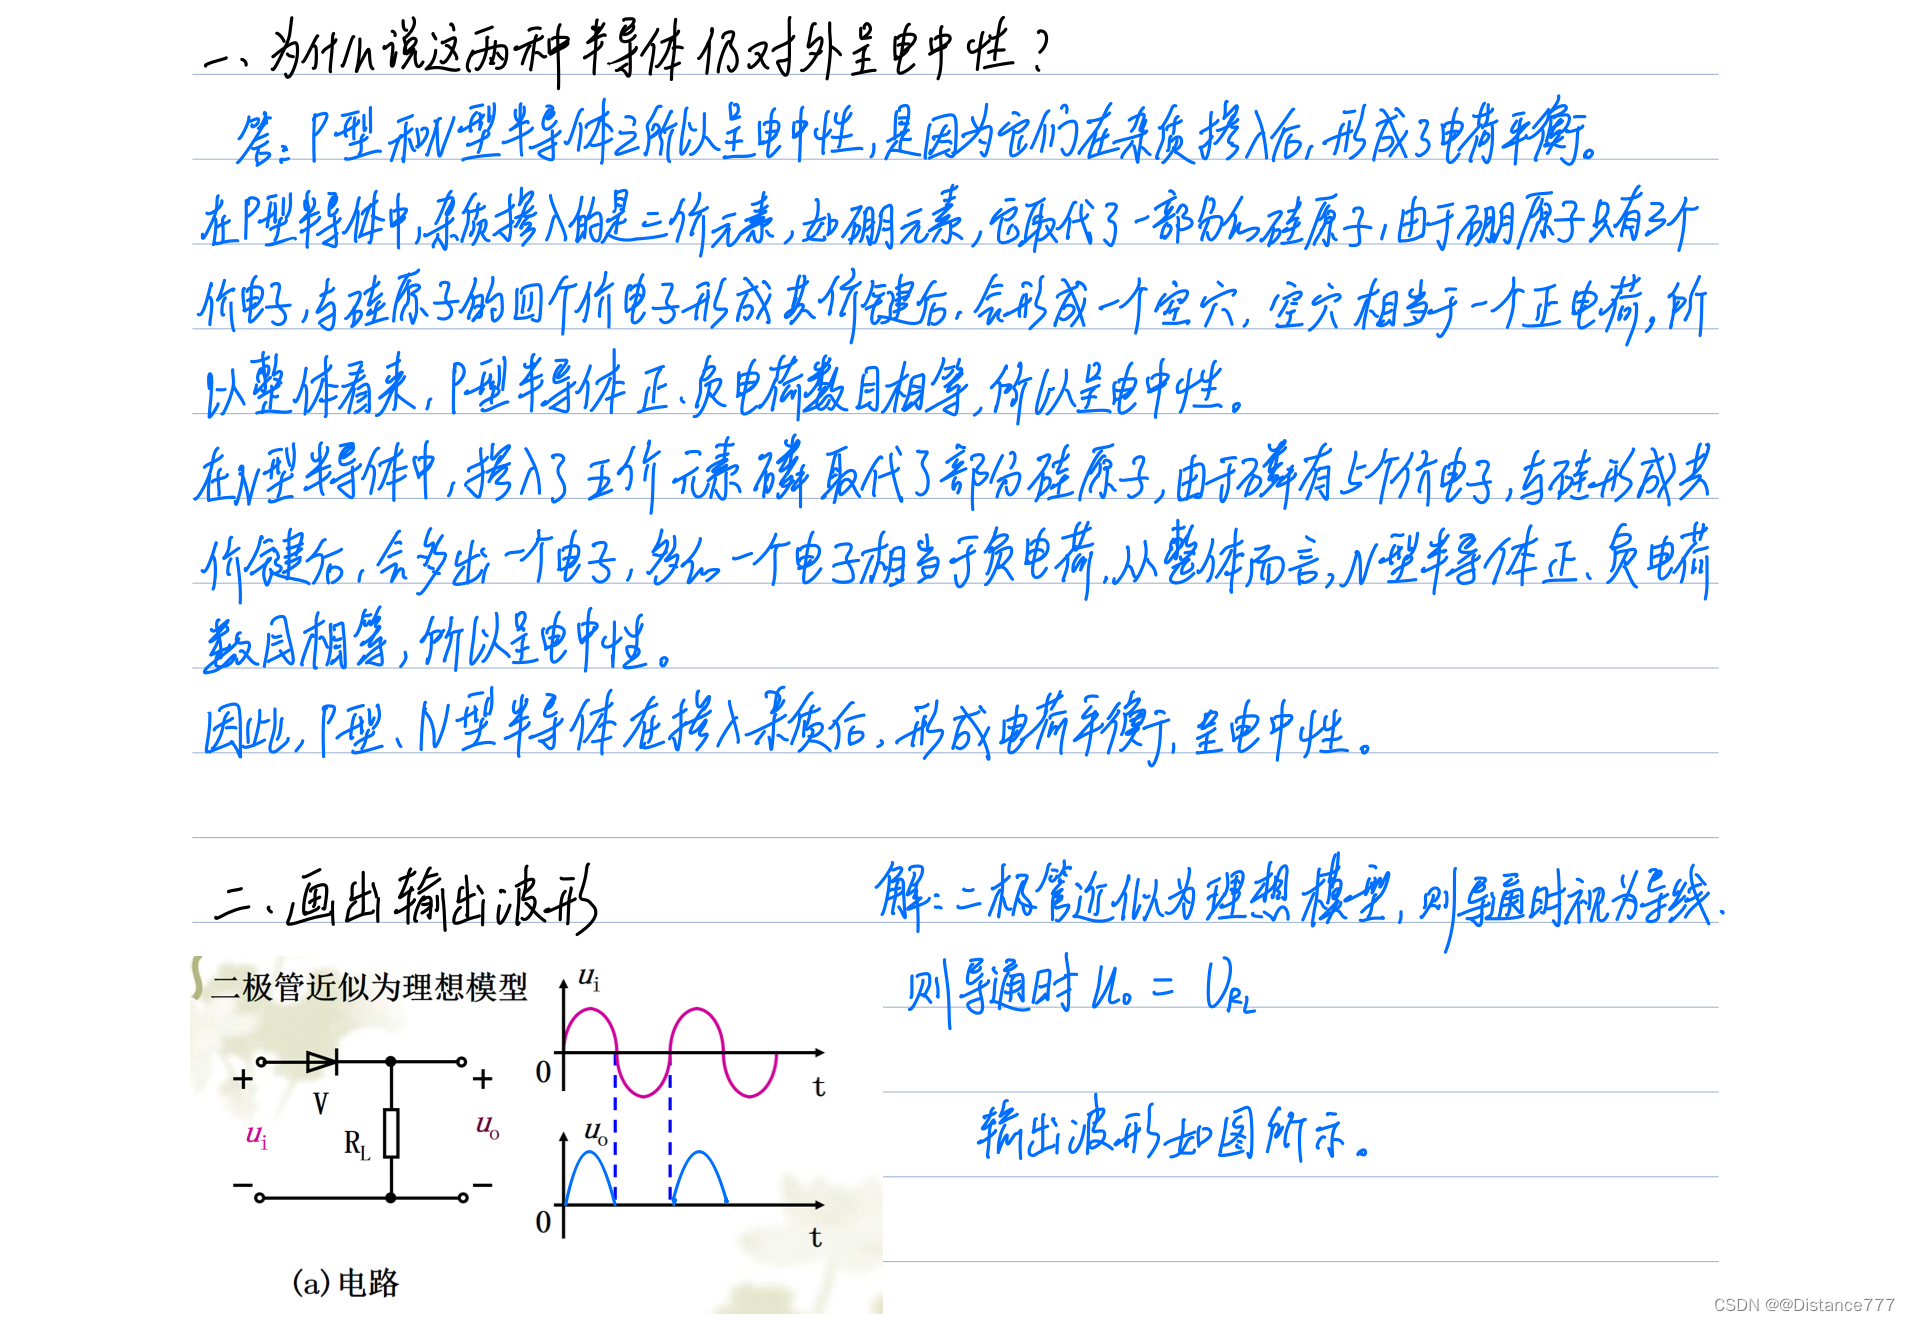 一、为什么说这两种半导体仍对外呈电中性?
答:P型和N型半导体之所以呈电中性,是因为它们在杂质掺入后,形成了电荷平衡。
在P型半导体中,杂质掺入的是三价元素,如硼元素,它取代了一部分的硅原子,由于硼原子只有3个
价电子,与硅原子的四个价电子形成共价键后,会形成一个空穴,空穴相当于一个正电荷,所
以整体看来,P型半导体正、负电荷数目相等,所以呈电中性。
在N型半导体中,掺入了五价元素磷取代了部分硅原子,由于磷有5个价电子,与硅形成共
价键后,会多出一个电子,多的一个电子相当于负电荷,从整体而言,N型半导体正、负电荷
数目相等,所以呈电中性。
因此,P型、N型半导体在掺入杂质后,形成电荷平衡,呈电中性。
二、画出输出波形
解:二极管近似为理想模型,则导通时视为导线.
则导通时 u₀ = U_RL
输出波形如图所示。
二极管近似为理想模型
+
V
ui
RL
+
uo
−
−
(a)电路
ui
0
t
uo
0
t
CSDN @@Distance777